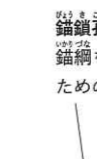 錨鎖孔
錨綱
ための